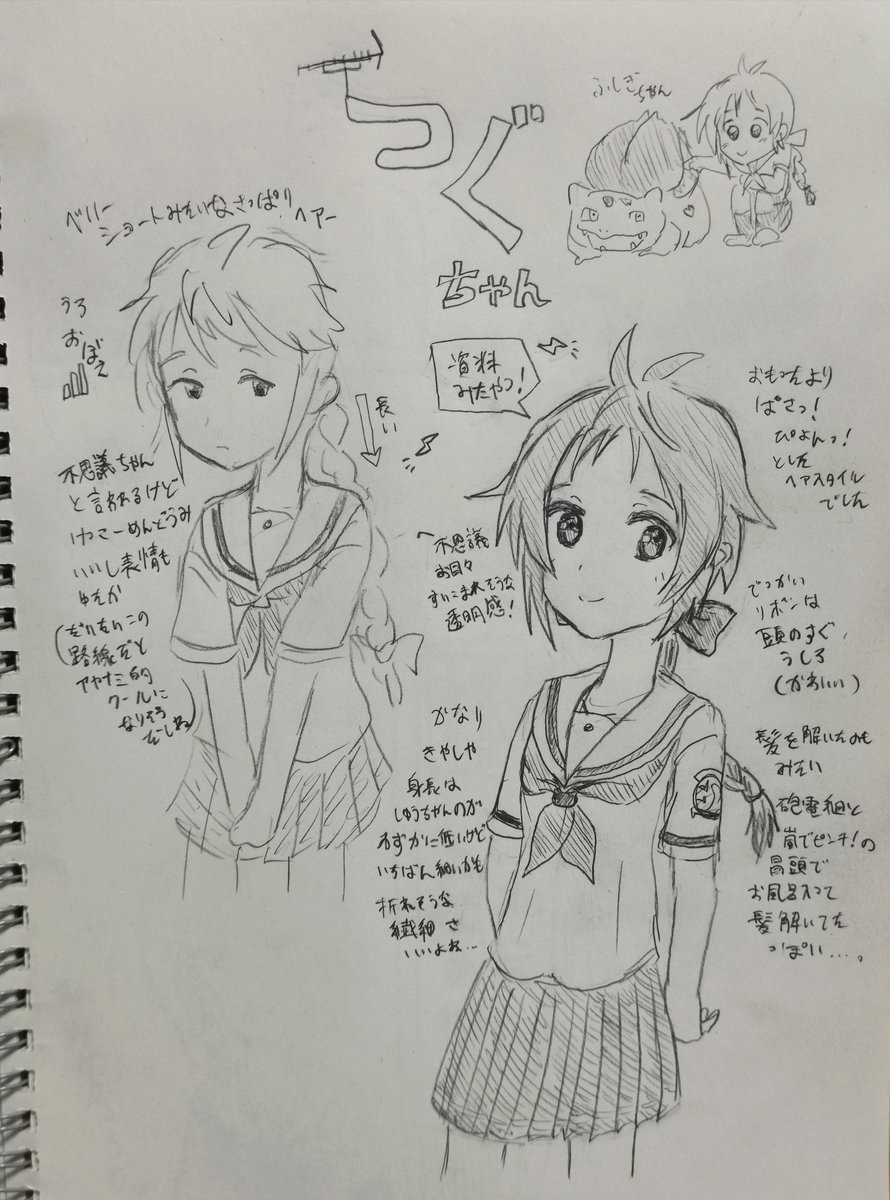 つぐ
ちゃん
ふしぎちゃん
ベリー
ショートみたいなさっぱり
ヘアー
うろ
おぼえ
長い
不思議ちゃん
と言われるけど
けっこーめんどうみ
いいし表情も
ゆたか
(だいたいこの
路線だと
アヤナミ的
クールに
なりそう
だしね)
資料
みたやつ!
おもったより
ぱさっ!
ぴよんっ!
とした
ヘアスタイル
でした
不思議
お目々
すいこまれそうな
透明感!
でっかい
リボンは
頭のすぐ
うしろ
(かわいい)
かなり
きゃしゃ
身長は
しゅうちゃんのが
わずかに低いけど
いちばん細いかも
折れそうな
繊細さ
いいよね…
髪を解いたのも
みたい
砲雷組と
嵐でピンチ!の
冒頭で
お風呂入って
髪解いてた
っぽい…。